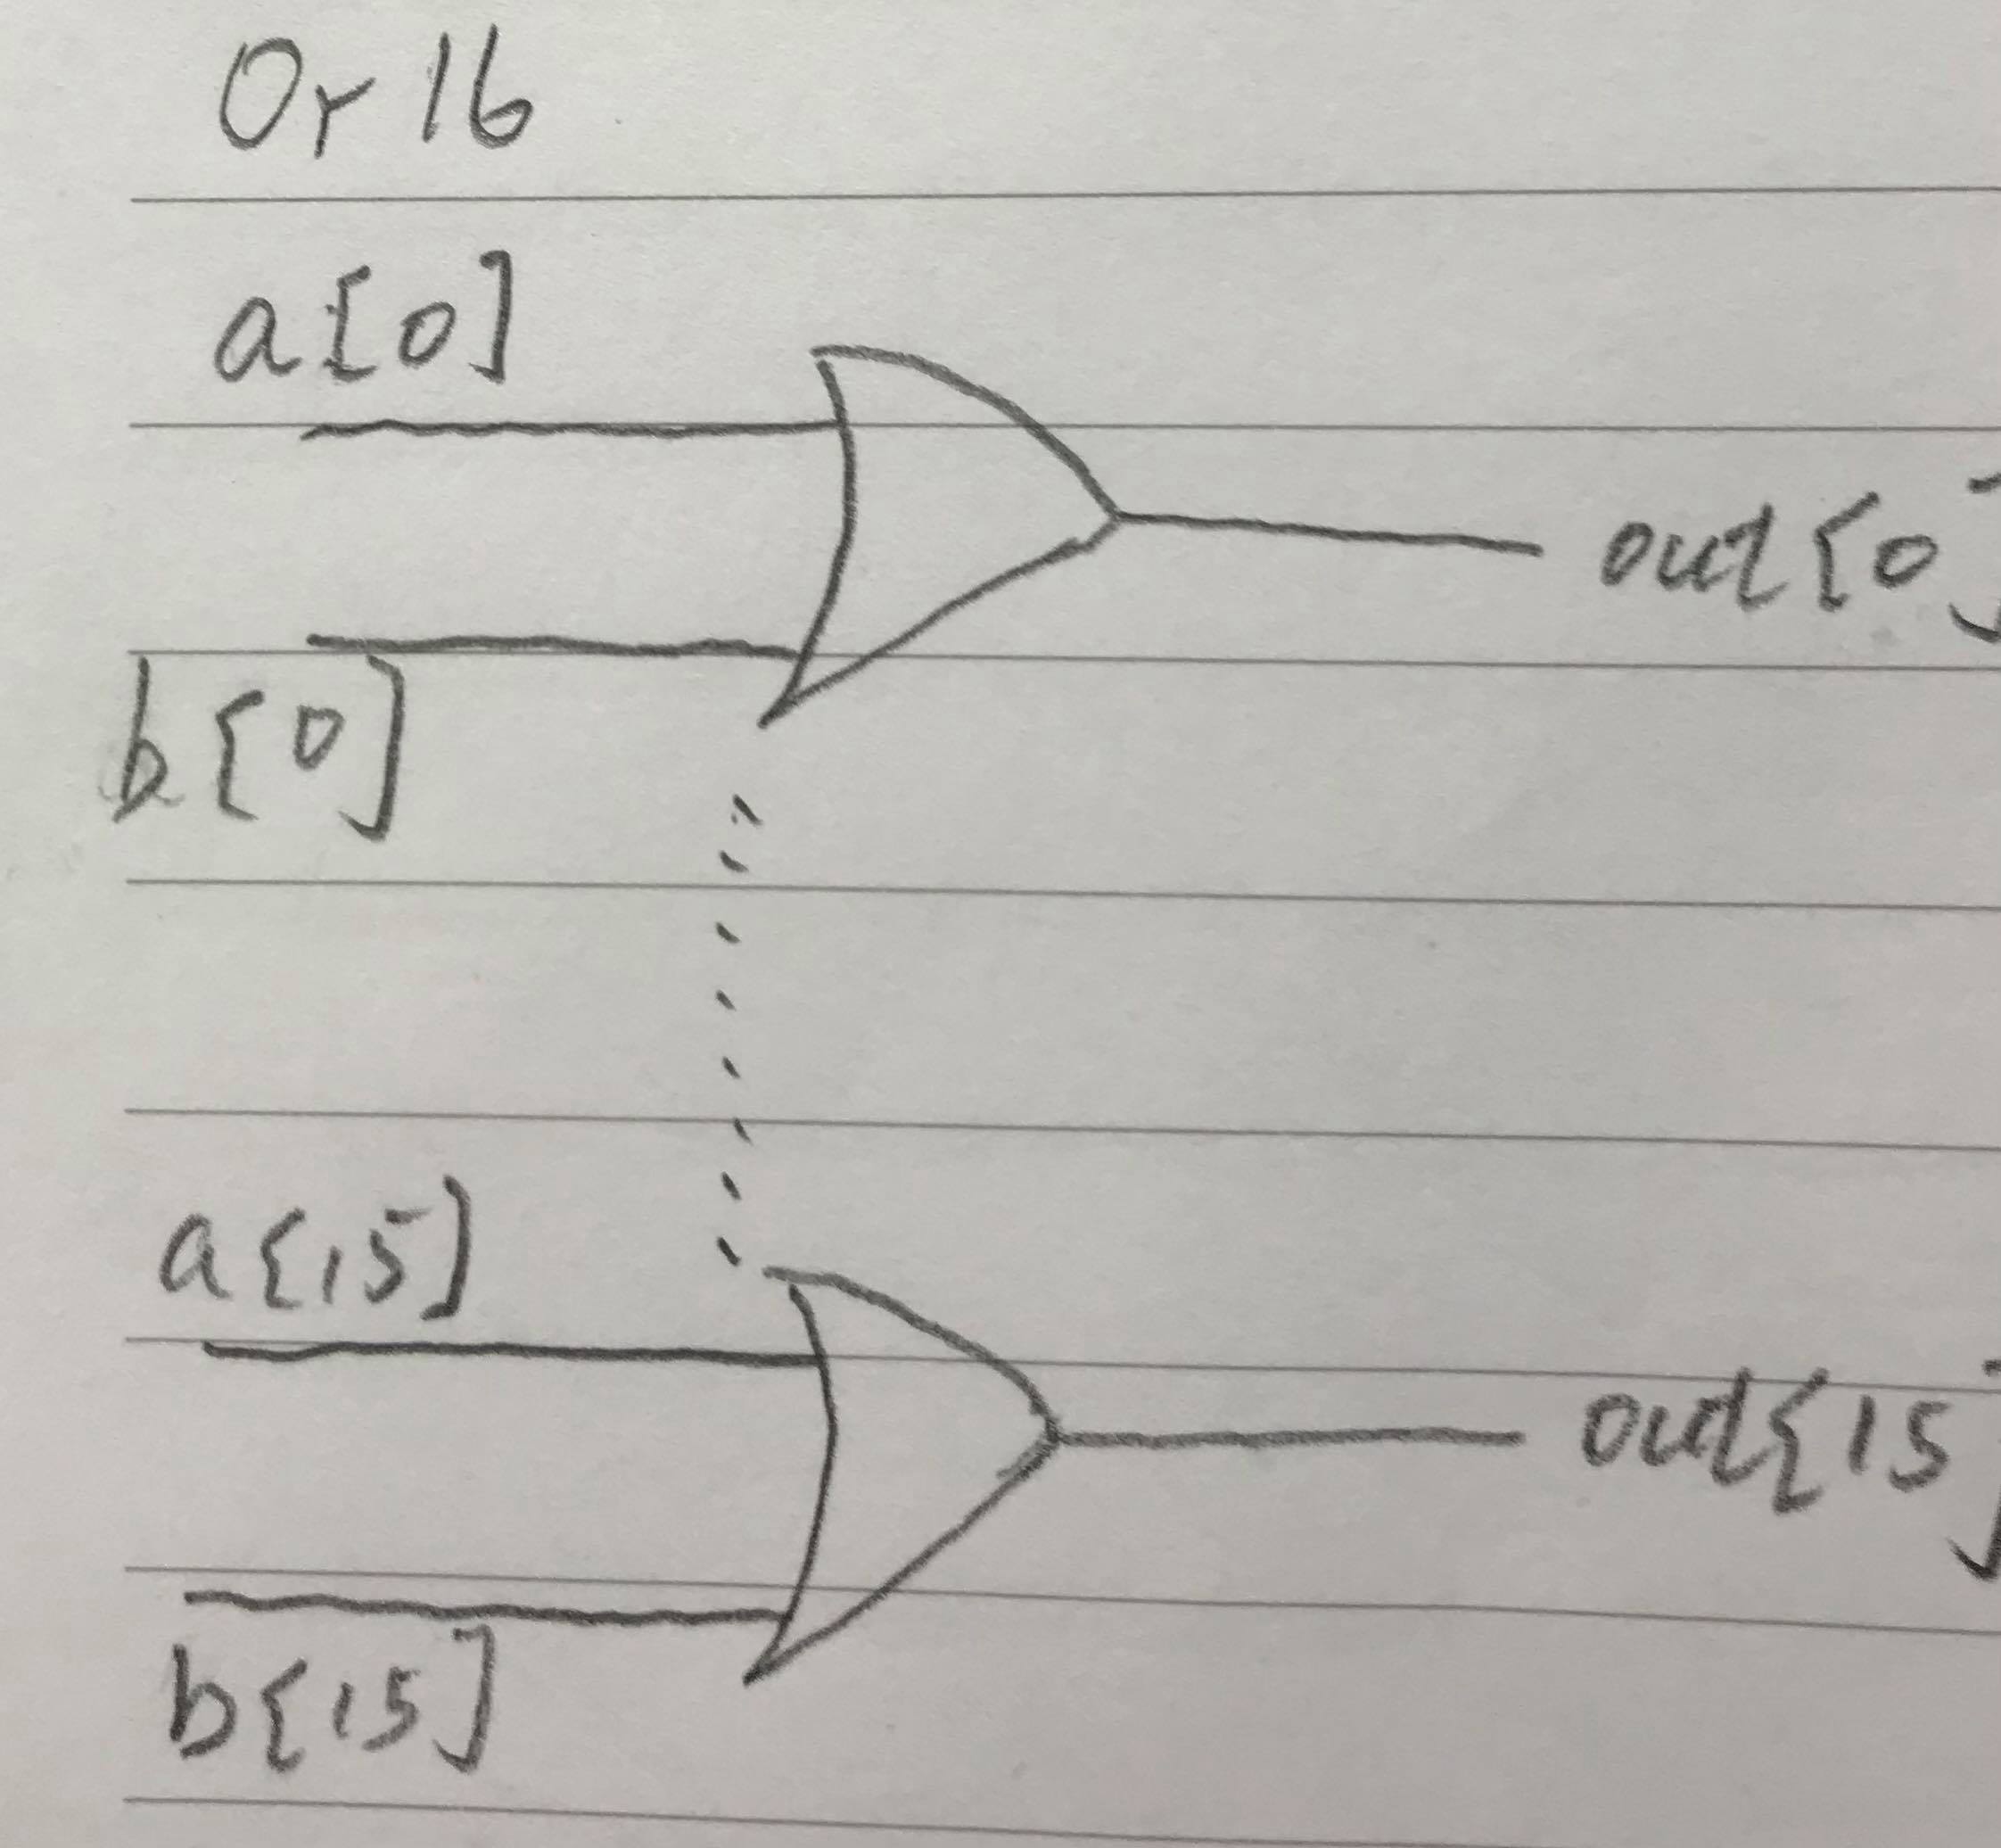 Or 16
a[0]
out[0]
b[0]
a[15]
out[15]
b[15]